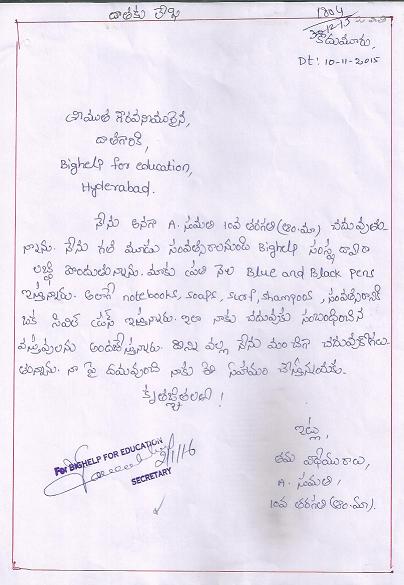 దాతకు లేఖ
1804
12-15
కోడుమూరు,
Dt: 10-11-2015
గౌరవనీయులైన,
దాతగారికి,
Bighelp for education,
Hyderabad.
నేను అనగా A. సుమతి 10వ తరగతి (ఆం.మా) చదువుతు
న్నాను. నేను గత మూడు సంవత్సరాలనుండి Bighelp సంస్థ ద్వారా
లబ్ధి పొందుతున్నాను. మాకు ప్రతి నెల Blue and Black pens
ఇస్తున్నారు. అలాగే notebooks, soaps, surf, shampoos, సంవత్సరానికి
ఒక సివిల్ డ్రస్ ఇస్తున్నారు. ఇలా నాకు చదువుకు సంబంధించిన
వస్తువులను అందజేస్తున్నారు. దీని వల్ల నేను మంచిగా చదువుకోగలు
తున్నాను. నా పై దయవుంచి నాకు ఈ సహాయం చేస్తున్నందుకు
కృతజ్ఞతలు!
ఇట్లు,
తమ విధేయురాలు,
A. సుమతి,
10వ తరగతి (ఆం.మా).
For BIGHELP FOR EDUCATION
2/1/16
SECRETARY